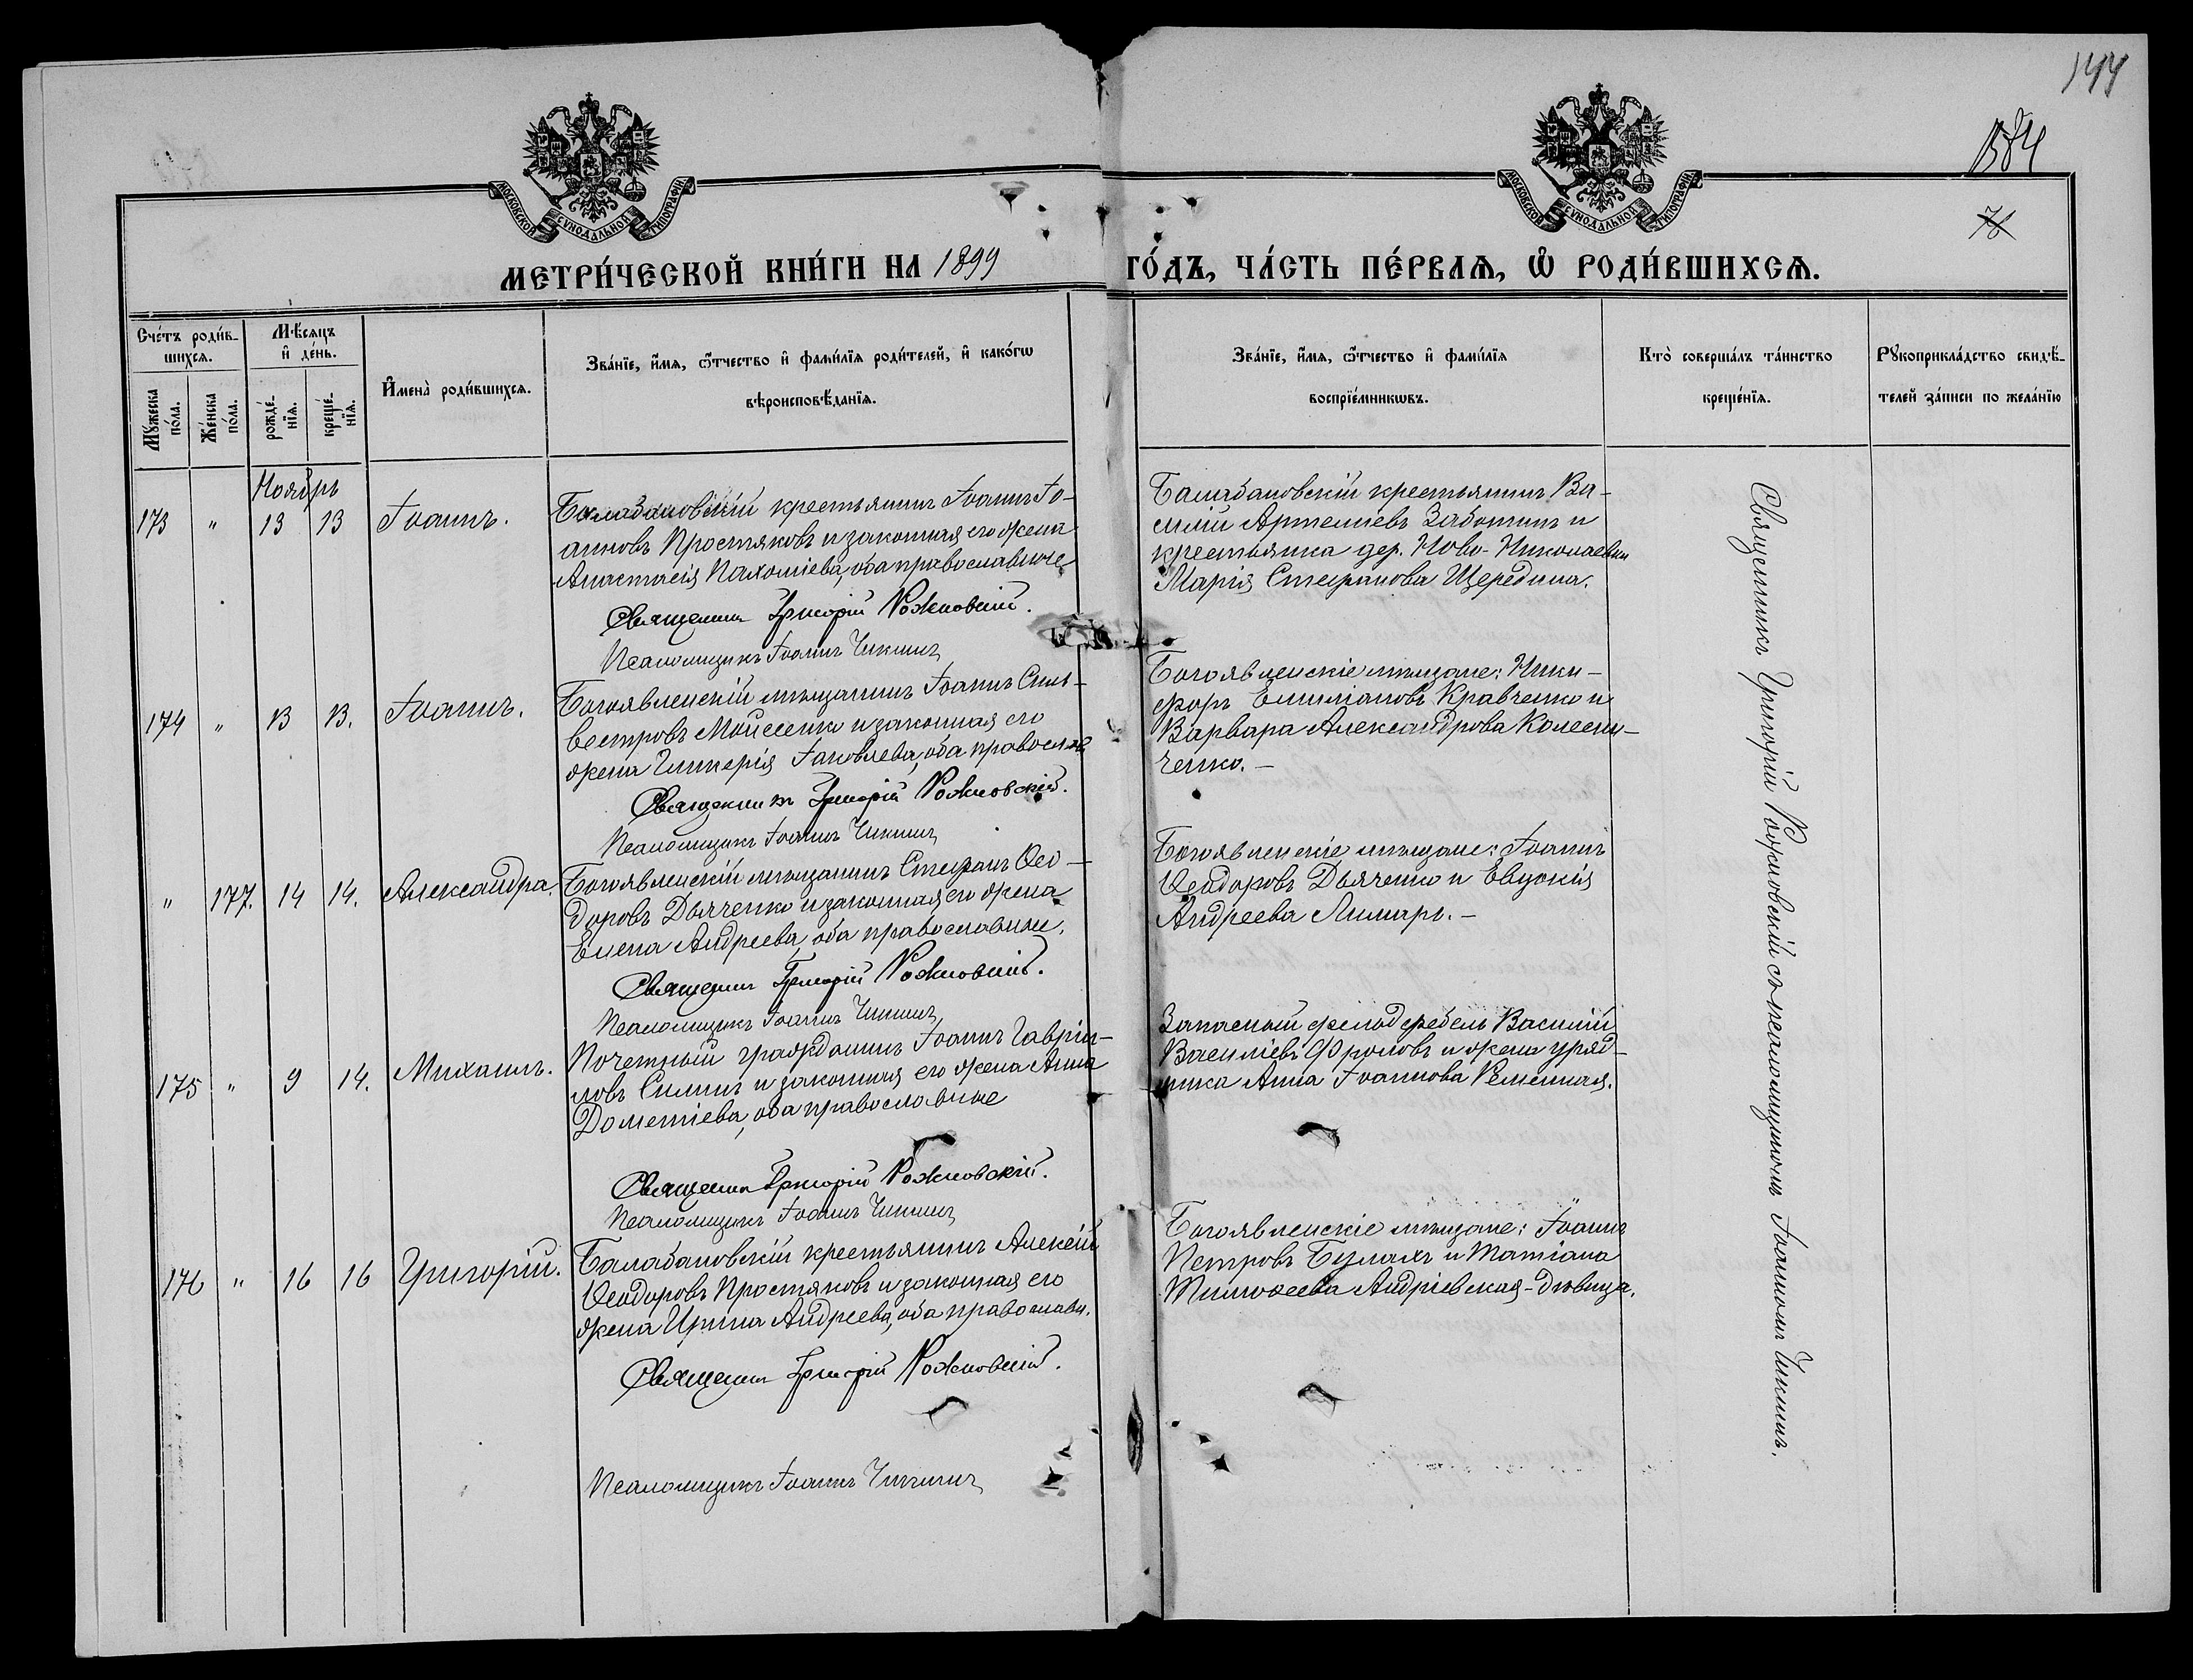 144
1584
76
МОСКОВСКОЙ СѴНОДАЛЬНОЙ ТИПОГРАФІИ
МОСКОВСКОЙ СѴНОДАЛЬНОЙ ТИПОГРАФІИ
МЕТРИ́ЧЕСКОЙ КНИ́ГИ НА 1899 ГО́ДЪ, ЧА́СТЬ ПЕ́РВАѦ, Ѽ РОДИ́ВШИХСѦ.
Сче́тъ роди́в-
шихсѧ.
Мꙋжеска по́ла.
Же́нска по́ла.
Мѣ́сѧцъ
и҆ де́нь.
рожде́-
нїѧ.
креще́-
нїѧ.
И҆мена̀ роди́вшихсѧ.
Зва́нїе, и҆́мѧ, ѻ҆́тчество и҆ фами́лїѧ роди́телей, и҆ како́гѡ
вѣроисповѣ́данїѧ.
Зва́нїе, и҆́мѧ, ѻ҆́тчество и҆ фами́лїѧ
воспрїе́мникѡвъ.
Кто̀ соверша́лъ та́инство
креще́нїѧ.
Рꙋкоприкла́дство свидѣ́-
телей за́писи по жела́нїю
Ноябрь
173 " 13 13 Іоаннъ.
Балабановскій крестьянинъ Іоаннъ Іо-
анновъ Простяковъ и законная его жена
Анастасія Пахоміева, оба православные
Священникъ Григорій Рожновскій.
Псаломщикъ Іоаннъ Чикнинъ
Балабановскій крестьянинъ Ва-
силій Артеміевъ Заботинъ и
крестьянка дер. Ново-Николаевки
Марія Стефанова Щередина.
174 " 13 13. Іоаннъ.
Богоявленскій мѣщанинъ Іоаннъ Силь-
вестровъ Мойсеенко и законная его
жена Гликерія Іаковлева, оба православ
Священникъ Григорій Рожновскій.
Псаломщикъ Іоаннъ Чикнинъ
Богоявленскіе мѣщане: Ники-
форъ Емиліановъ Кравченко и
Варвара Александрова Колесни-
ченко.-
" 177. 14 14. Александра.
Богоявленскій мѣщанинъ Стефанъ Ѳео-
доровъ Дьяченко и законная его жена
Елена Андреева, оба православные.
Священникъ Григорій Рожновскій.
Псаломщикъ Іоаннъ Чикнинъ
Богоявленскіе мѣщане: Іоаннъ
Ѳеодоровъ Дьяченко и Евдокія
Андреева Лимарь.-
175 " 9 14. Михаилъ.
Почетный гражданинъ Іоаннъ Гавріи-
ловъ Силинъ и законная его жена Анна
Дометіева, оба православные
Священникъ Григорій Рожновскій.
Псаломщикъ Іоаннъ Чикнинъ
Запасный фельдфебель Василій
Василіевъ Фроловъ и жена уряд-
ника Анна Іоаннова Ременная.
176 " 16 16 Григорій.
Балабановскій крестьянинъ Алексій
Ѳеодоровъ Простяковъ и законная его
жена Ирина Андреева, оба православн.
Священникъ Григорій Рожновскій.
Псаломщикъ Іоаннъ Чикнинъ
Богоявленскіе мѣщане: Іоаннъ
Петровъ Булахъ и Татіана
Тимоѳеева Андріевская-дѣвица.
Священникъ Григорій Рожновскій съ псаломщикомъ Іоанномъ Чикнинъ.